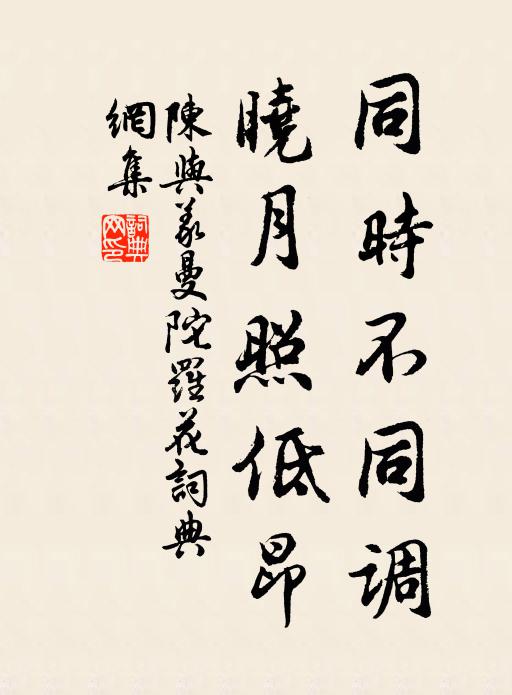 同時不同調
曉月照低昂
陳與義曼陀羅花詞典
網集
詞典
网印